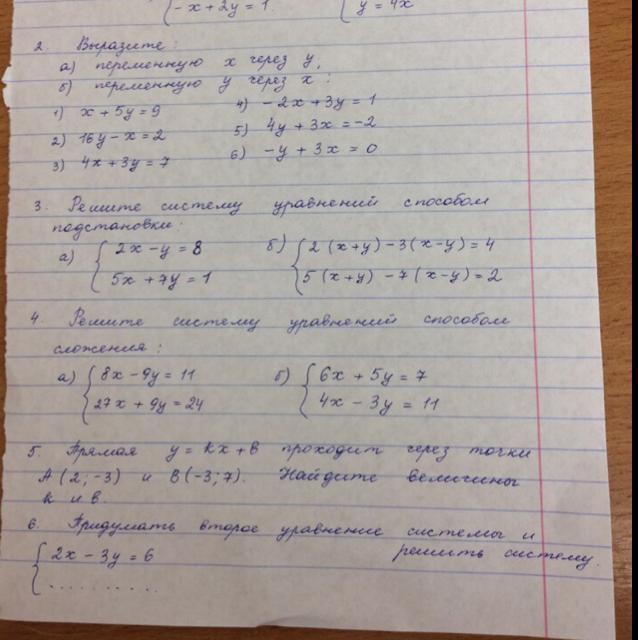 { -x + 2y = 1. { y = 4x
2. Выразите:
а) переменную x через y,
б) переменную y через x:
1) x + 5y = 9 4) -2x + 3y = 1
2) 16y - x = 2 5) 4y + 3x = -2
3) 4x + 3y = 7 6) -y + 3x = 0
3. Решите систему уравнений способом
подстановки:
а) { 2x - y = 8 б) { 2(x+y) - 3(x-y) = 4
5x + 7y = 1 5(x+y) - 7(x-y) = 2
4. Решите систему уравнений способом
сложения:
а) { 8x - 9y = 11 б) { 6x + 5y = 7
27x + 9y = 24 4x - 3y = 11
5. Прямая y = kx + b проходит через точки
A(2; -3) и B(-3; 7). Найдите величины
k и b.
6. Придумать второе уравнение системы и
решить систему.
{ 2x - 3y = 6
...........